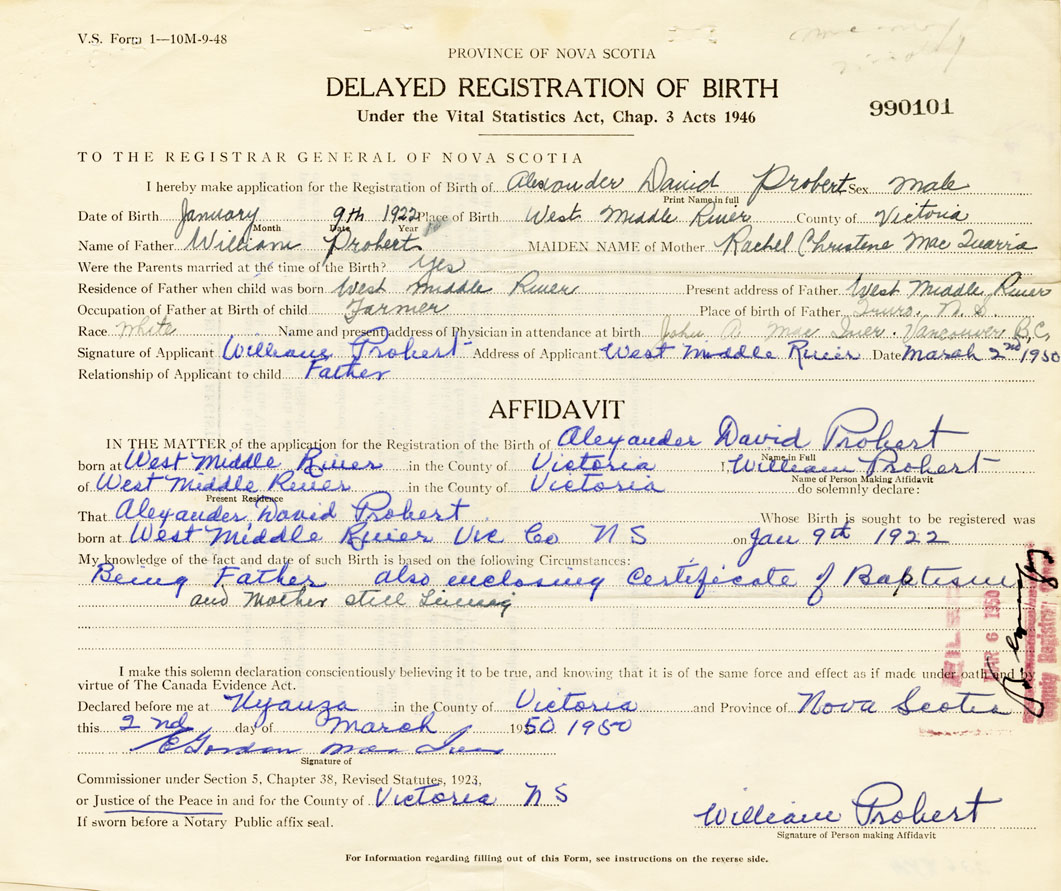 V.S. Form 1—10M-9-48
PROVINCE OF NOVA SCOTIA
DELAYED REGISTRATION OF BIRTH
Under the Vital Statistics Act, Chap. 3 Acts 1946
990101
TO THE REGISTRAR GENERAL OF NOVA SCOTIA
I hereby make application for the Registration of Birth of Alexander David Probert Sex male
Print Name in full
Date of Birth January 9th 1922 Place of Birth West Middle River County of Victoria
Month Date Year
Name of Father William Probert MAIDEN NAME of Mother Rachel Christene Mac Quarrie
Were the Parents married at the time of the Birth? yes
Residence of Father when child was born West Middle River Present address of Father West Middle River
Occupation of Father at Birth of child Farmer Place of birth of Father Truro, N.S.
Race White Name and present address of Physician in attendance at birth John A. Mac Iver. Vancouver B.C.
Signature of Applicant William Probert Address of Applicant West Middle River Date March 2nd 1950
Relationship of Applicant to child Father
AFFIDAVIT
IN THE MATTER of the application for the Registration of the Birth of Alexander David Probert
Name in Full
born at West Middle River in the County of Victoria I, William Probert
Name of Person Making Affidavit
of West Middle River in the County of Victoria do solemnly declare:
Present Residence
That Alexander David Probert Whose Birth is sought to be registered was
born at West Middle River Vic Co N S on Jan 9th 1922
My knowledge of the fact and date of such Birth is based on the following Circumstances:
Being Father also enclosing Certificate of Baptism
and Mother still Living
FILED
MAR 6 1950
Deputy Registrar
I make this solemn declaration conscientiously believing it to be true, and knowing that it is of the same force and effect as if made under oath and by
virtue of The Canada Evidence Act.
Declared before me at Nyanza in the County of Victoria and Province of Nova Scotia
this 2nd day of March 1950 1950
E Gordon Mac Iver
Signature of
Commissioner under Section 5, Chapter 38, Revised Statutes, 1923,
or Justice of the Peace in and for the County of Victoria N S
If sworn before a Notary Public affix seal.
William Probert
Signature of Person making Affidavit
For Information regarding filling out of this Form, see instructions on the reverse side.